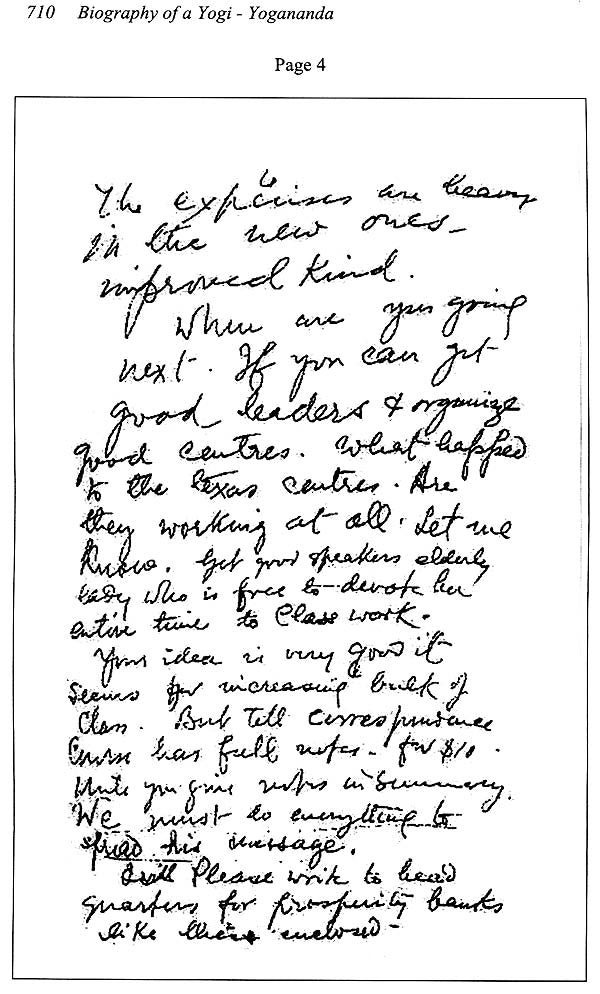 710 Biography of a Yogi - Yogananda
Page 4
The expenses are heavy
in the new ones -
improved kind.
When are you going
next. If you can get
good leaders & organize
good centres. What happed
to the Texas centres. Are
they working at all. Let me
Know. Get good speakers elderly
lady who is free to devote her
entire time to Class work.
Your idea is very good it
seems for increasing bulk of
Class. But Tell correspondence
Course has full notes - for $10.
you give notes in Summary.
We must do everything to
spread his message.
Please write to head
quarters for prosperity banks
like these enclosed -